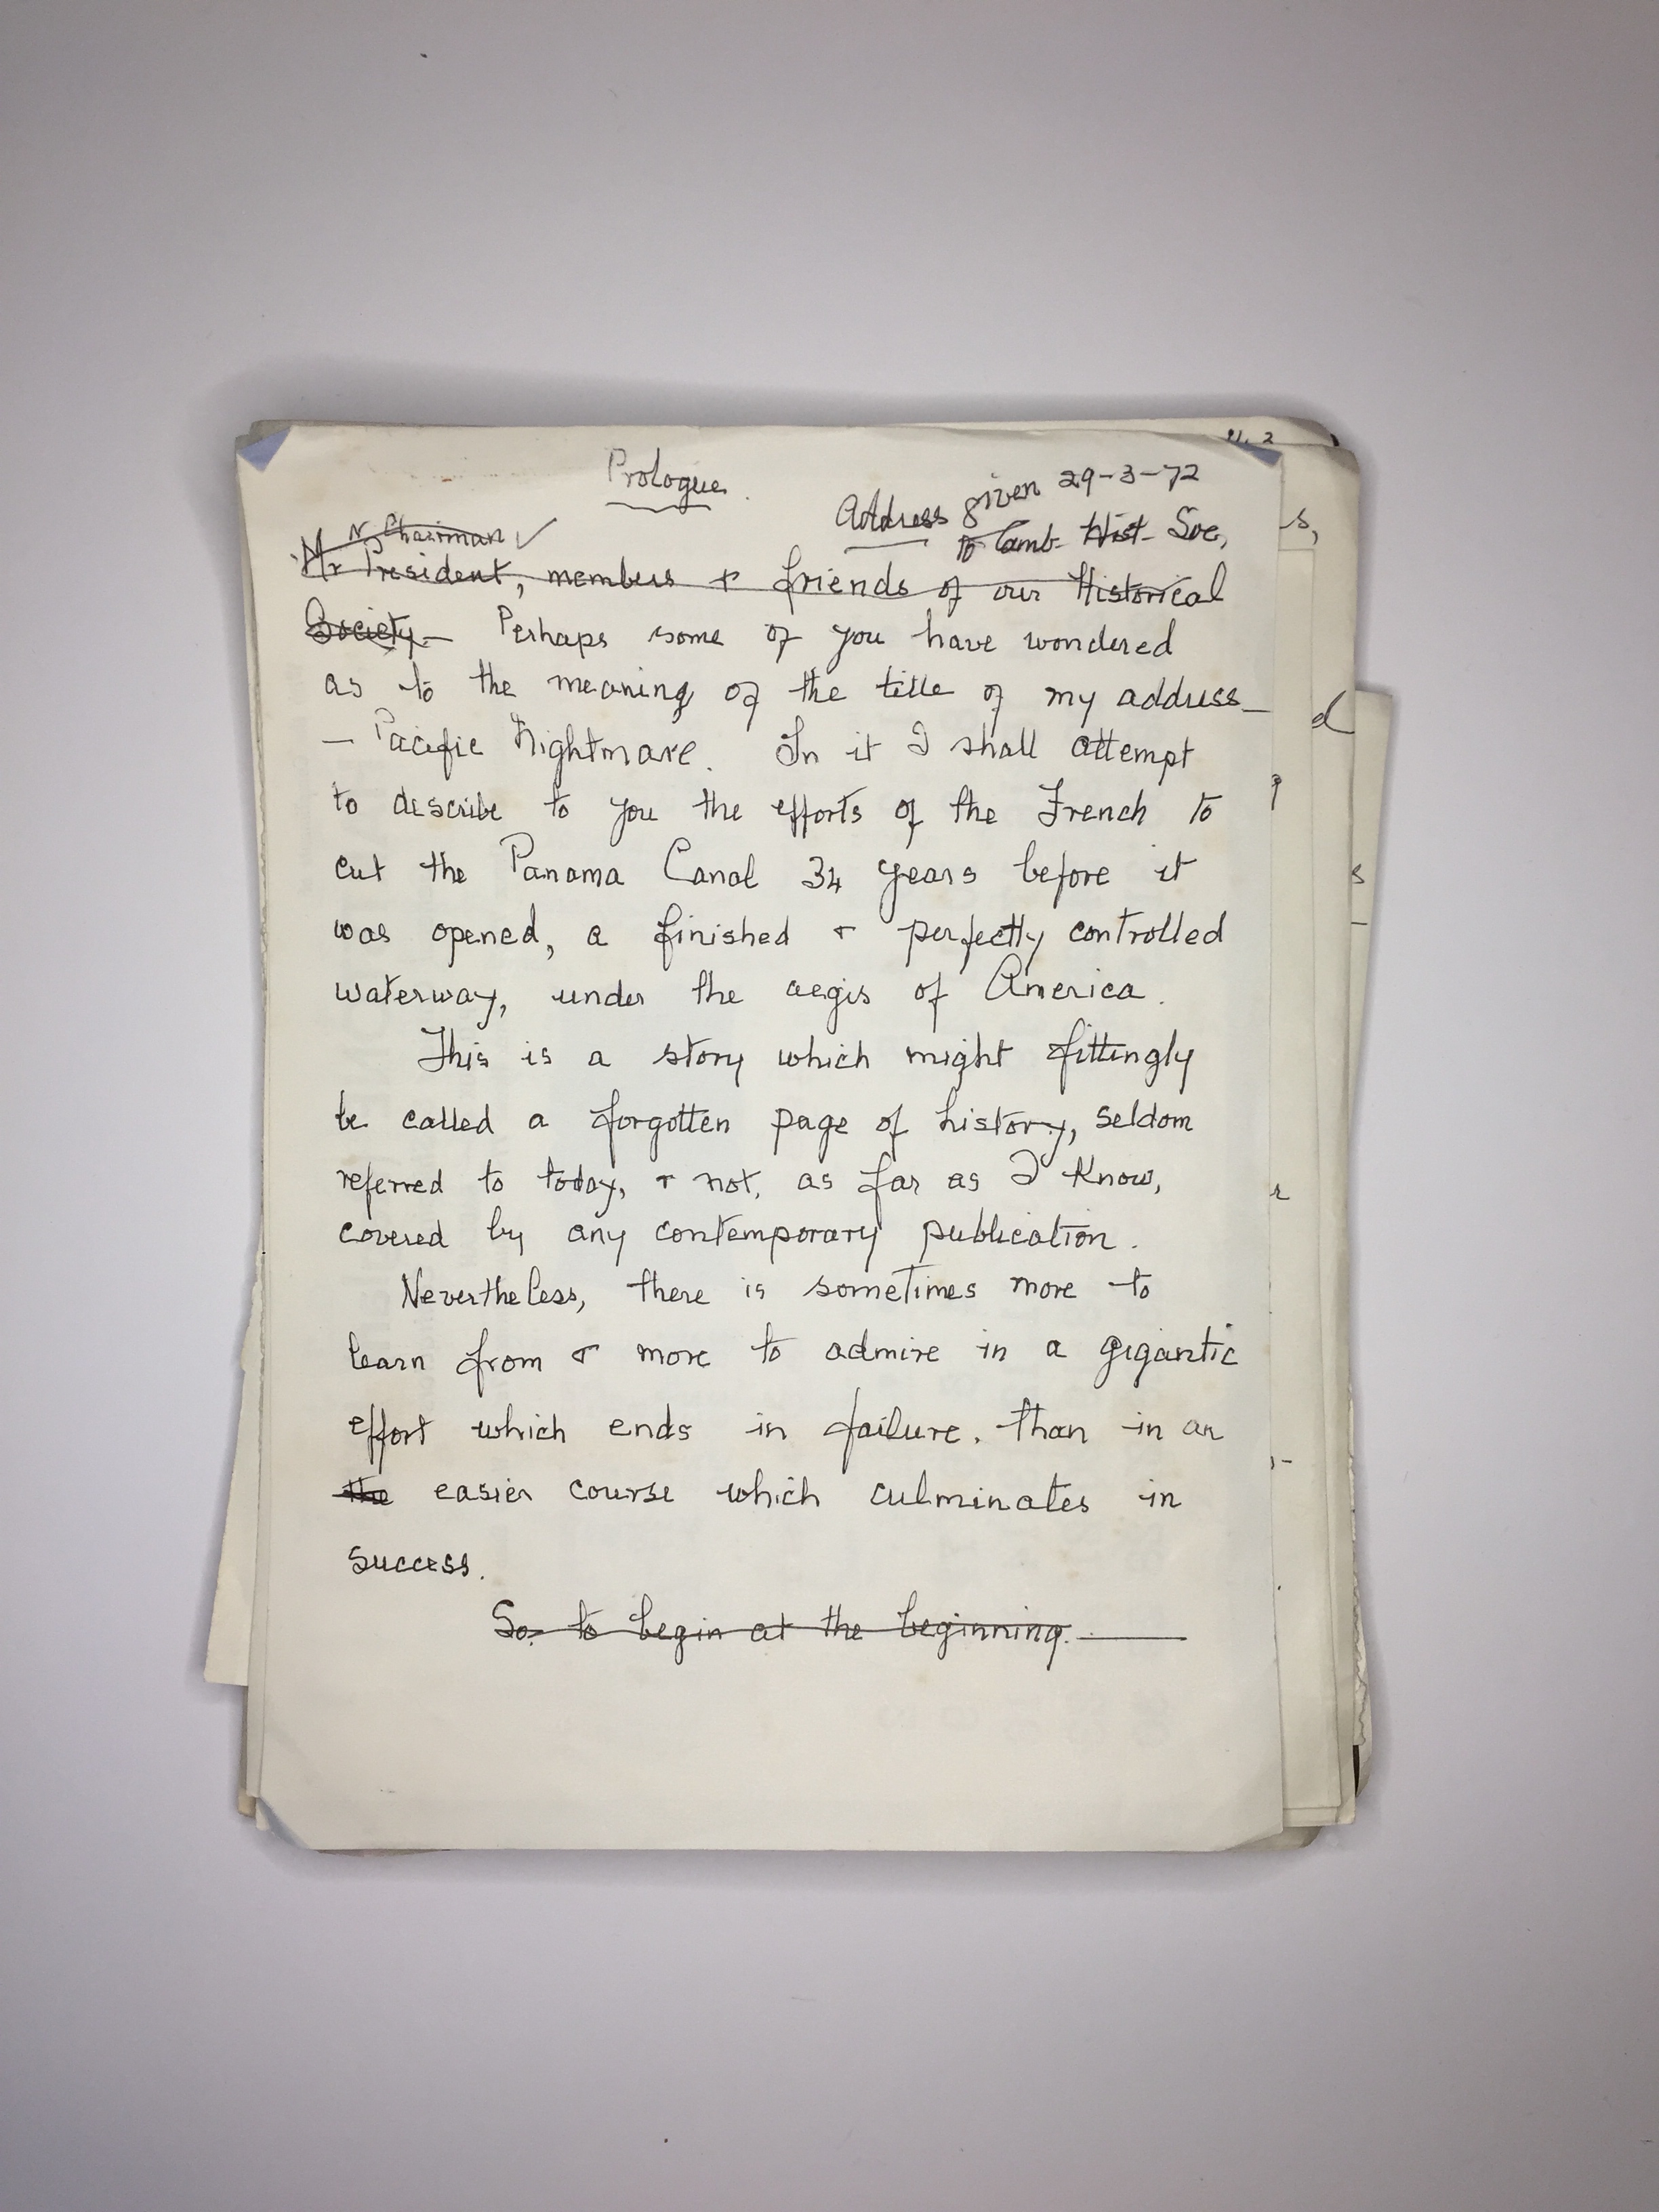 Prologue.
Address given 29-3-72
to Camb- Hist- Soc,
Chairman ✓
Mr President, members + friends of our Historical
Society - Perhaps some of you have wondered
as to the meaning of the title of my address -
- Pacific Nightmare. In it I shall attempt
to describe to you the efforts of the French to
cut the Panama Canal 34 years before it
was opened, a finished + perfectly controlled
waterway, under the aegis of America.
This is a story which might fittingly
be called a forgotten page of history, seldom
referred to today, + not, as far as I know,
covered by any contemporary publication.
Nevertheless, there is sometimes more to
learn from + more to admire in a gigantic
effort which ends in failure, than in an
the easier course which culminates in
success.
So, to begin at the beginning.